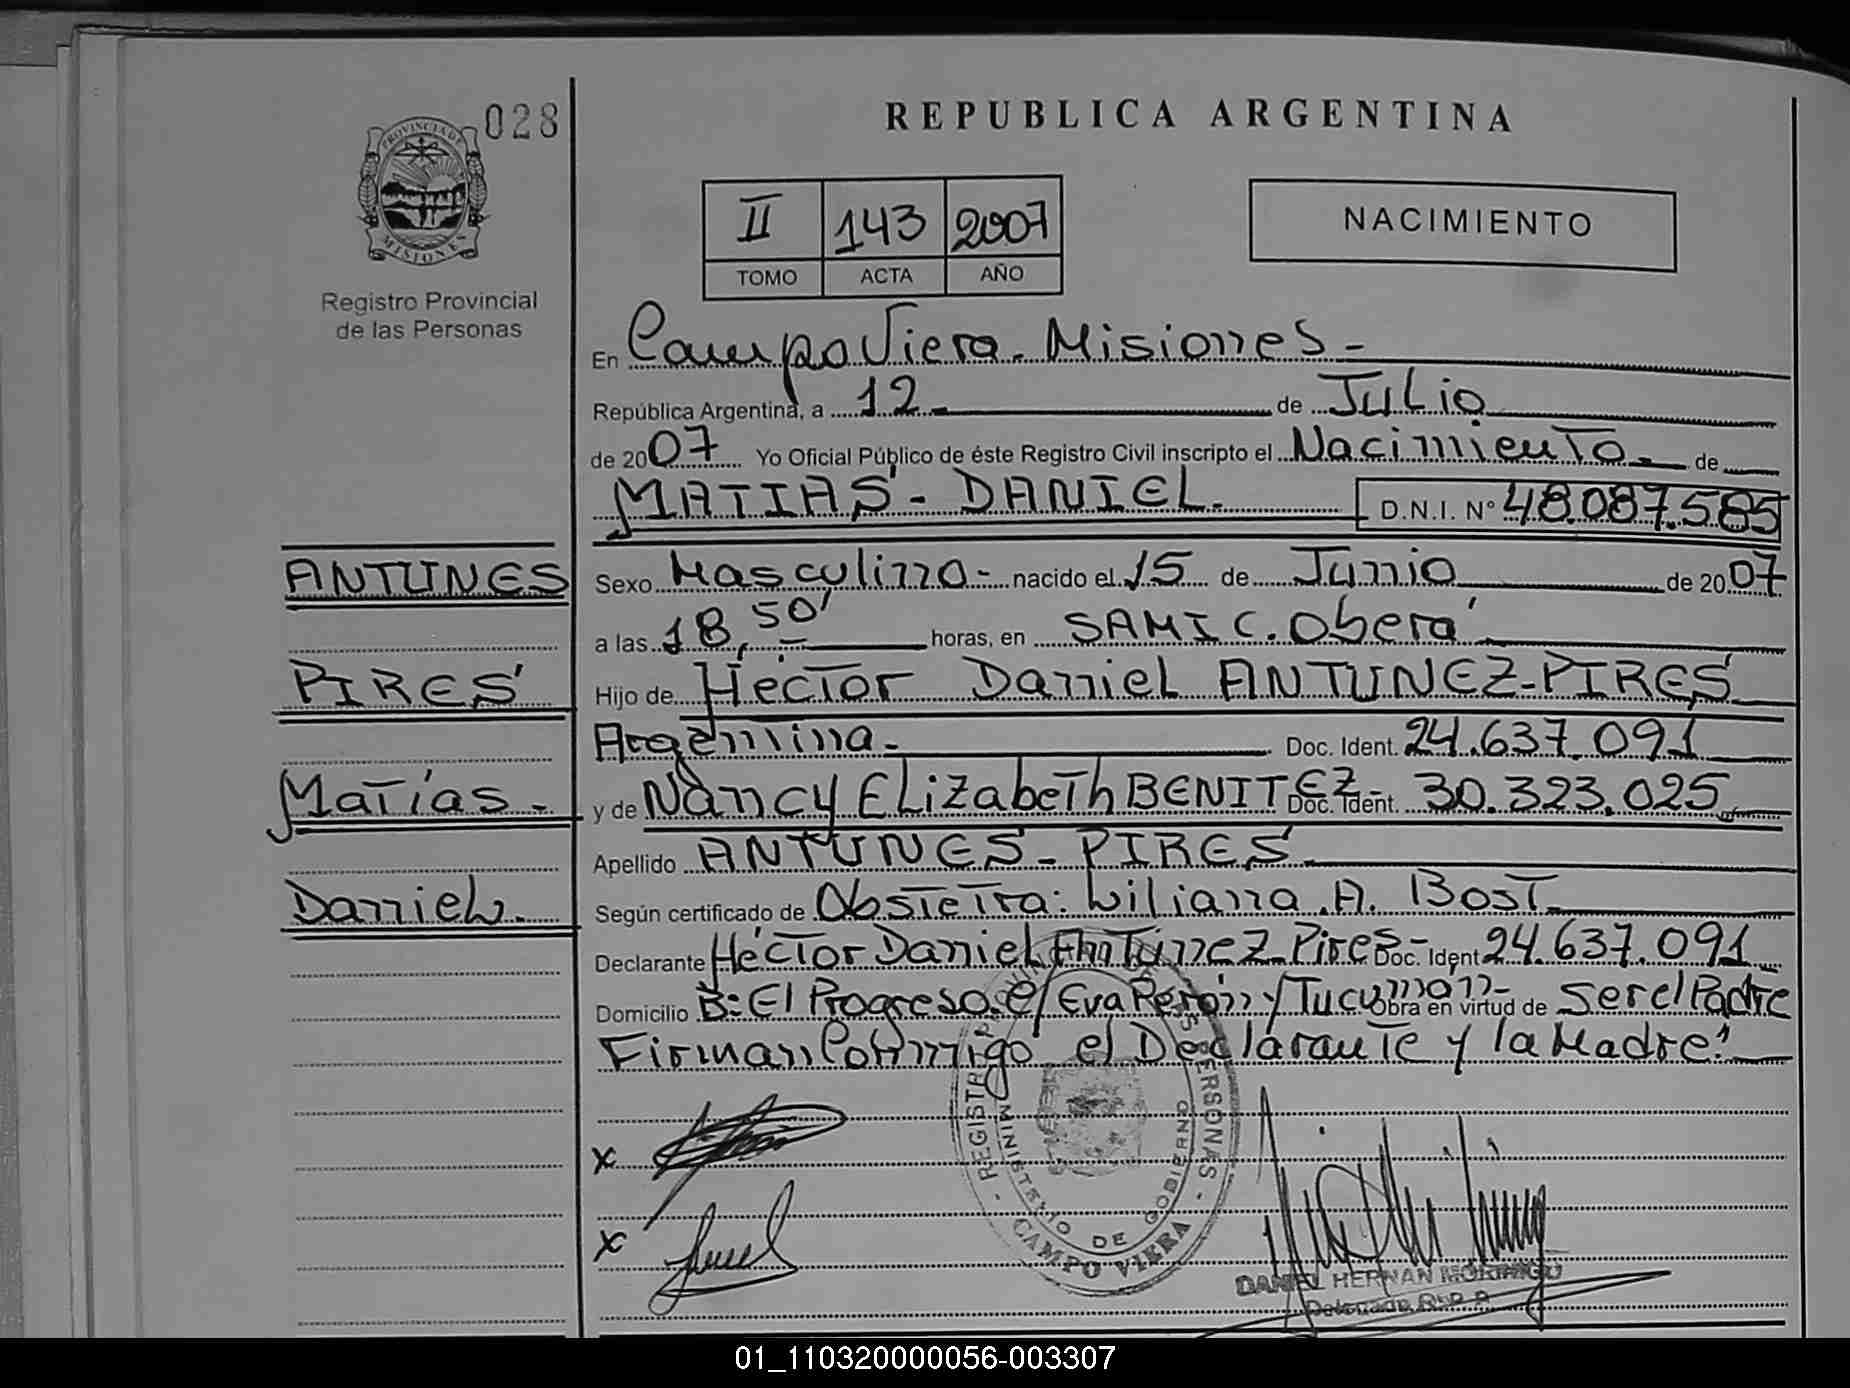 028
PROVINCIA DE
MISIONES
Registro Provincial
de las Personas
REPUBLICA ARGENTINA
II 143 2007
TOMO ACTA AÑO
NACIMIENTO
En Campo Viera. Misiones -
República Argentina, a 12 de Julio
de 2007 Yo Oficial Público de éste Registro Civil inscripto el Nacimiento de
MATIAS - DANIEL. D.N.I. N° 48.087.585
ANTUNES
Sexo Masculino - nacido el 15 de Junio de 2007
a las 18,50' horas, en SAMIC. Oberá
PIRES
Hijo de Héctor Daniel ANTUNEZ-PIRES
Argentina - Doc. Ident. 24.637.091
Matías -
y de Nancy Elizabeth BENITEZ - Doc. Ident. 30.323.025
Apellido ANTUNES - PIRES
Daniel.
Según certificado de Obstetra: Liliana A. Bost
Declarante Héctor Daniel Antunez Pires - Doc. Ident 24.637.091
Domicilio B: El Progreso. e/ Eva Perón y Tucuman - Obra en virtud de ser el Padre
Firman Conmigo el Declarante y la Madre.
x
x
REGISTRO PROVINCIAL DE LAS PERSONAS
MINISTERIO DE GOBIERNO
CAMPO VIERA
DANIEL HERNAN
Delegado
01_110320000056-003307